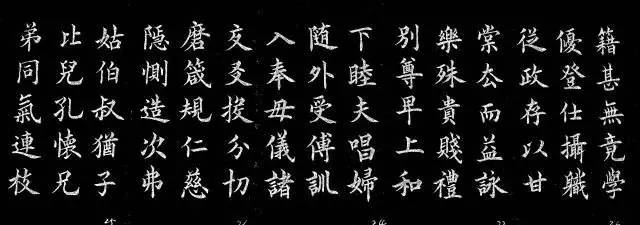 籍甚無竟學
優登仕攝職
從政存以甘
棠去而益詠
樂殊貴賤禮
別尊卑上和
下睦夫唱婦
随外受傅訓
入奉母儀諸
交友投分切
磨箴規仁慈
隱惻造次弗
姑伯叔猶子
比兒孔懷兄
弟同氣連枝